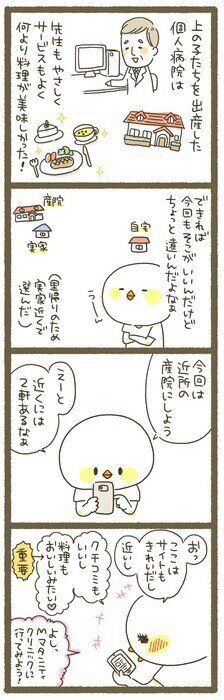 上の子たちを出産した
個人病院は
先生もやさしく
サービスもよく
何より料理が美味しかった!
できれば
今回もそこがいいんだけど
ちょっと遠いんだよなぁ
自宅
産院
実家
うーん
(里帰りのため
実家近くで
選んだ)
今回は
近所の
産院にしよう
えーと
近くには
2軒あるなぁ
おっ
ここは
サイトも
きれいだし
近いし
クチコミも
いいし
料理も
おいしいみたい
重要
よし、
Mマタニティ
クリニックに
行ってみよう!